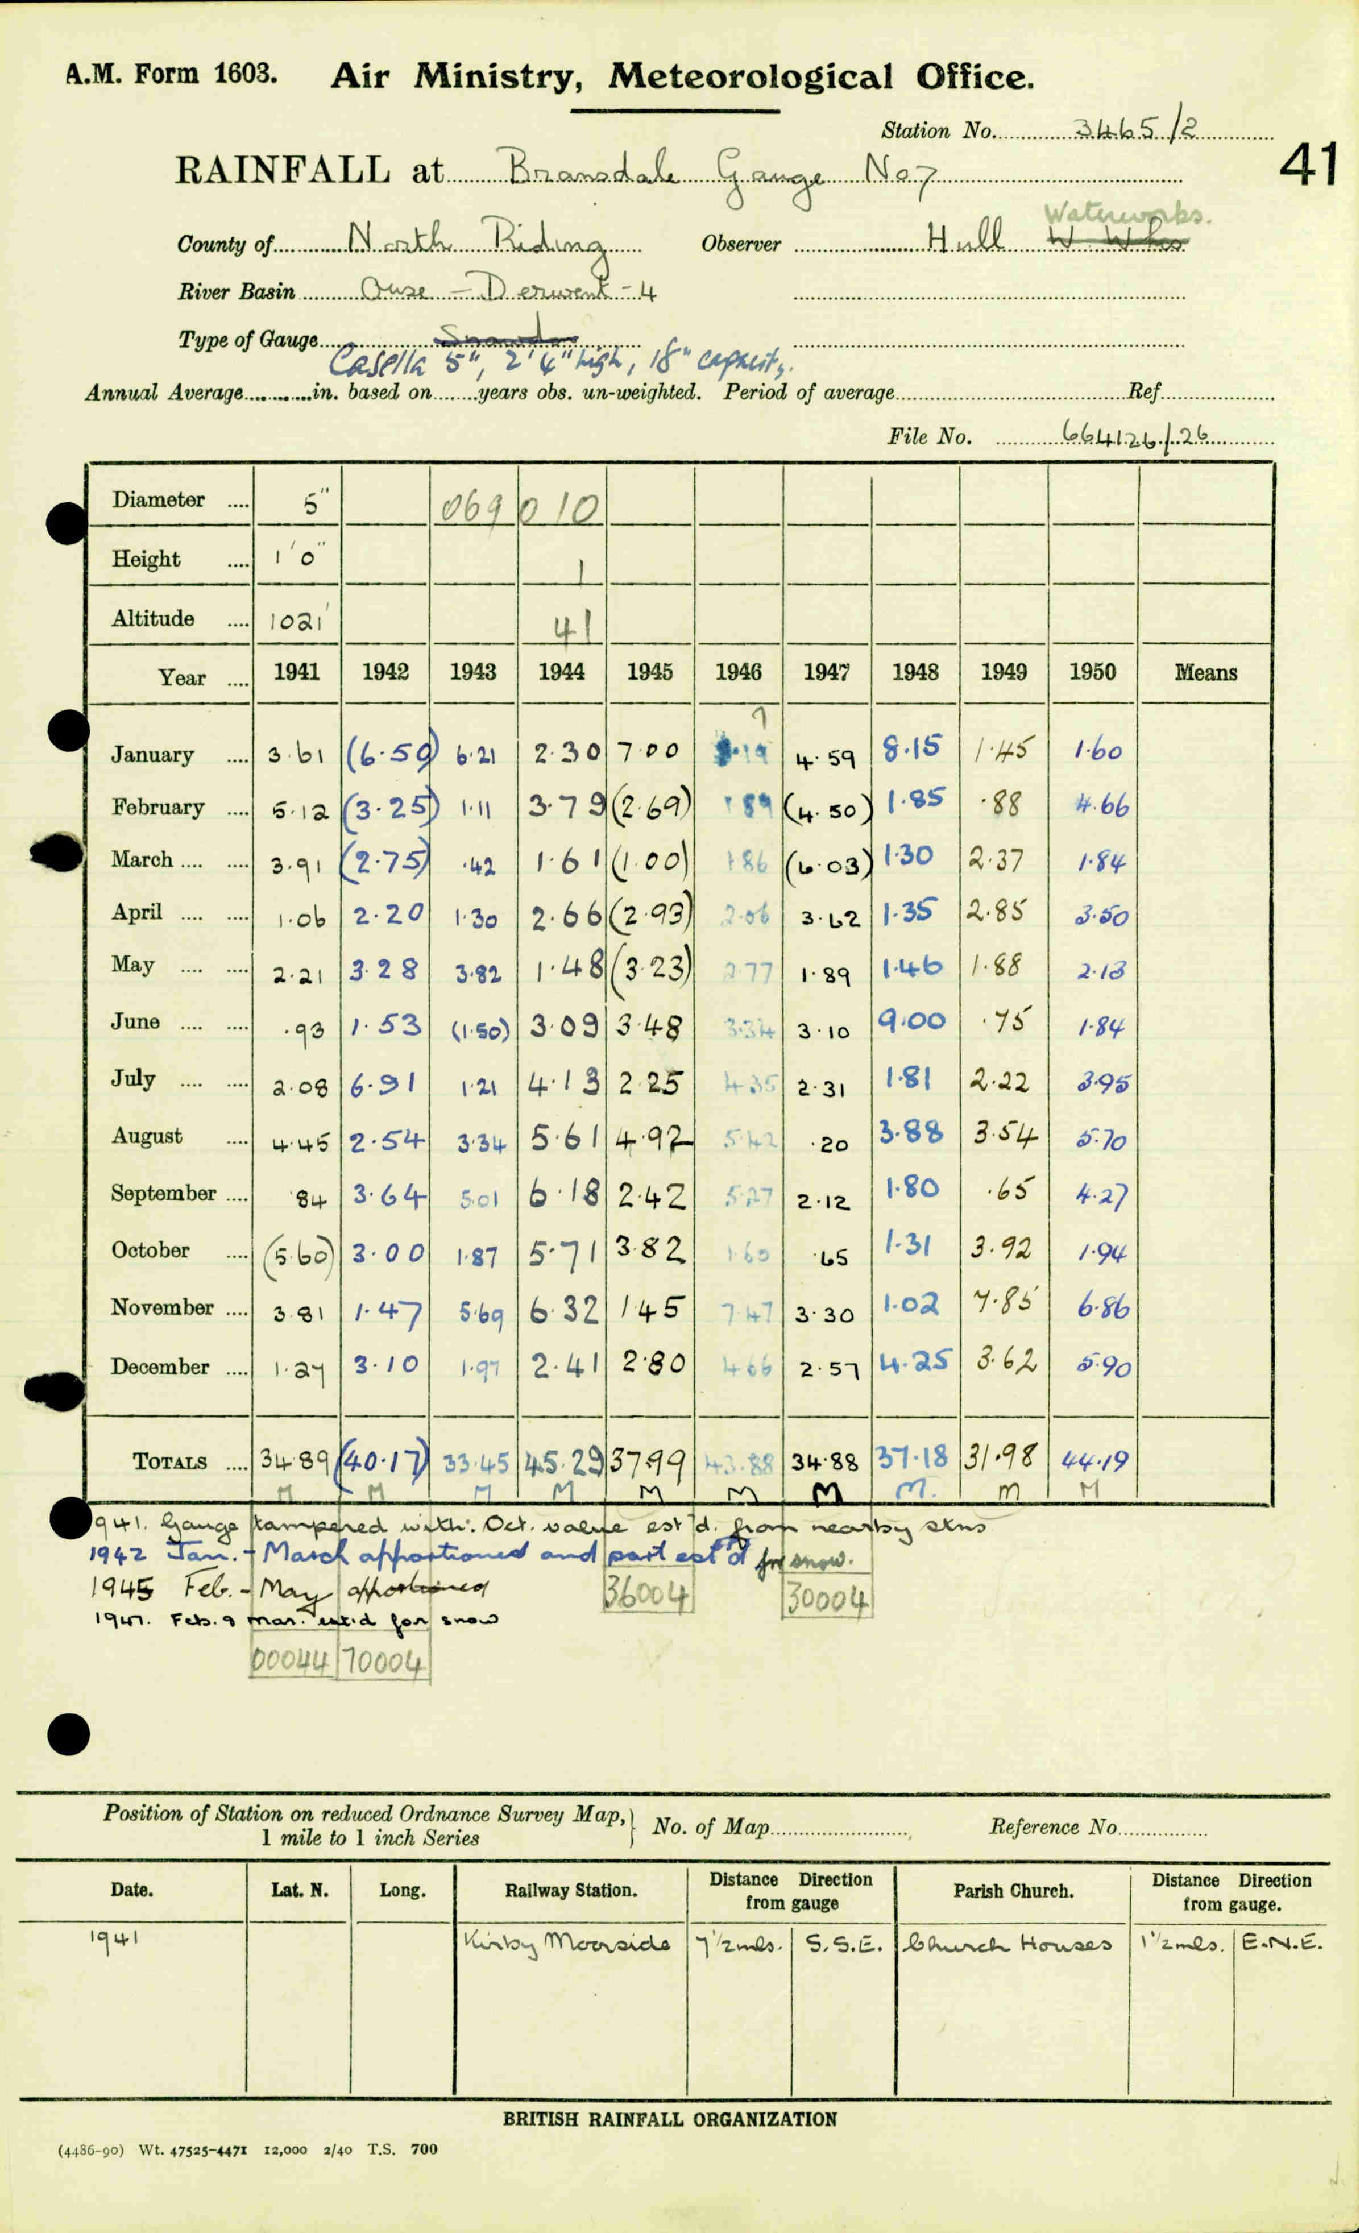 A.M. Form 1603. Air Ministry, Meteorological Office.
Station No. 3465/2
41
RAINFALL at Bransdale Gauge No 7
Waterworks.
County of North Riding Observer Hull W. Wks
River Basin Ouse - Derwent - 4
Type of Gauge Snowdon
Casella 5", 2'4" high, 18" capacity.
Annual Average in. based on years obs. un-weighted. Period of average Ref.
File No. 664126/26
Diameter .... 5" 069 010
Height .... 1'0" 1
Altitude .... 1021' 41
Year .... 1941 1942 1943 1944 1945 1946 1947 1948 1949 1950 Means
?
January .... 3.61 (6.50) 6.21 2.30 7.00 3.19 4.59 8.15 1.45 1.60
February .... 5.12 (3.25) 1.11 3.79 (2.69) 1.89 (4.50) 1.85 .88 4.66
March .... .... 3.91 (2.75) .42 1.61 (1.00) 1.86 (6.03) 1.30 2.37 1.84
April .... .... 1.06 2.20 1.30 2.66 (2.93) 2.06 3.62 1.35 2.85 3.50
May .... .... 2.21 3.28 3.82 1.48 (3.23) 2.77 1.89 1.46 1.88 2.13
June .... .... .93 1.53 (1.50) 3.09 3.48 3.34 3.10 9.00 .75 1.84
July .... .... 2.08 6.91 1.21 4.13 2.25 4.35 2.31 1.81 2.22 3.95
August .... 4.45 2.54 3.34 5.61 4.92 5.42 .20 3.88 3.54 5.70
September .... .84 3.64 5.01 6.18 2.42 5.27 2.12 1.80 .65 4.27
October .... (5.60) 3.00 1.87 5.71 3.82 1.60 .65 1.31 3.92 1.94
November .... 3.81 1.47 5.69 6.32 1.45 7.47 3.30 1.02 7.85 6.86
December .... 1.27 3.10 1.97 2.41 2.80 4.66 2.57 4.25 3.62 5.90
TOTALS .... 34.89 (40.17) 33.45 45.29 37.99 43.88 34.88 37.18 31.98 44.19
M M M M M M M M. M M
1941. Gauge tampered with. Oct. value est'd. from nearby stns
1942 Jan. - March apportioned and part est'd for snow.
1945 Feb. - May apportioned 36004 30004
1947. Feb. & Mar. est'd for snow
00044 70004
Position of Station on reduced Ordnance Survey Map, } No. of Map Reference No.
1 mile to 1 inch Series
Date. Lat. N. Long. Railway Station. Distance Direction from gauge Parish Church. Distance Direction from gauge.
1941 Kirby Moorside 7½ mls. S.S.E. Church Houses 1½ mls. E.N.E.
BRITISH RAINFALL ORGANIZATION
(4486-90) Wt. 47525-4471 12,000 2/40 T.S. 700